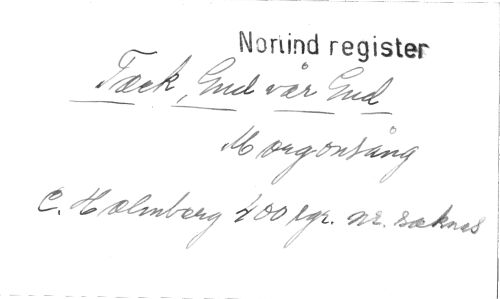 Norlind register
Tack, Gud vår Gud
Morgonsång
C. Holmberg 400 sgr. nr. saknas